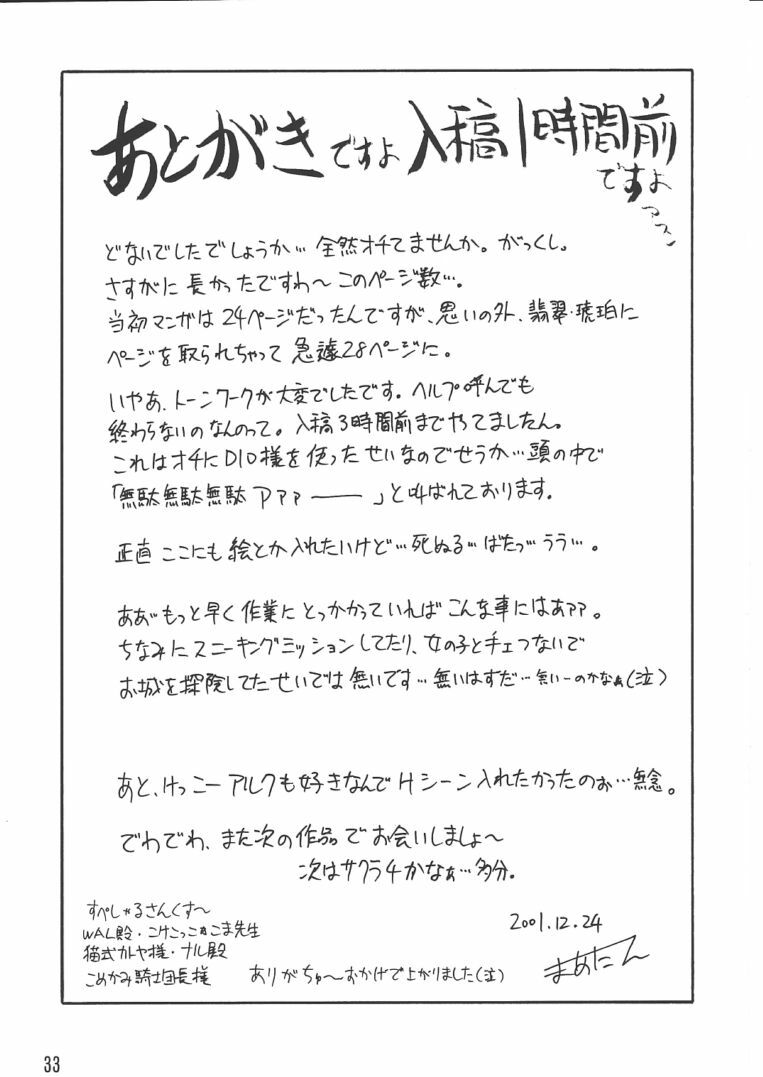 あとがきですよ 入稿1時間前
ですよ
どないでしたでしょうか… 全然オチてませんか。がっくし。
さすがに 長かったですわ〜 このページ数…。
当初マンガは 24ページだったんですが、思いの外、翡翠・琥珀に
ページを取られちゃって 急遽28ページに。
いやあ、トーンワークが大変でしたです。ヘルプ呼んでも
終わらないのなんのって。入稿3時間前までやってましたん。
これはオチにDIO様を使ったせいなのでせうか…頭の中で
「無駄無駄無駄アァァ―――」と叫ばれております。
正直 ここにも 絵とか入れたいけど…死ぬる…ばたっ…うう…。
ああ…もっと早く作業に とっかかっていれば こんな事にはあァァ。
ちなみに スニーキングミッションしてたり、女の子と手ェつないで
お城を探険してたせいでは 無いです…無いはずだ…無いーのかなぁ(泣)
あと、けっこー アルクも好きなんで Hシーン入れたかったのぉ…無念。
でわでわ、また次の作品で お会いしましょ〜
次はサクラ4かなぁ…多分。
すぺしゃるさんくす〜
WAL殿・こけこっこぉこま先生
猫式カトヤ様・ナル殿
こめかみ騎士団長様 ありがちゅ〜おかげで上がりました(泣)
2001.12.24
まぁたん
33